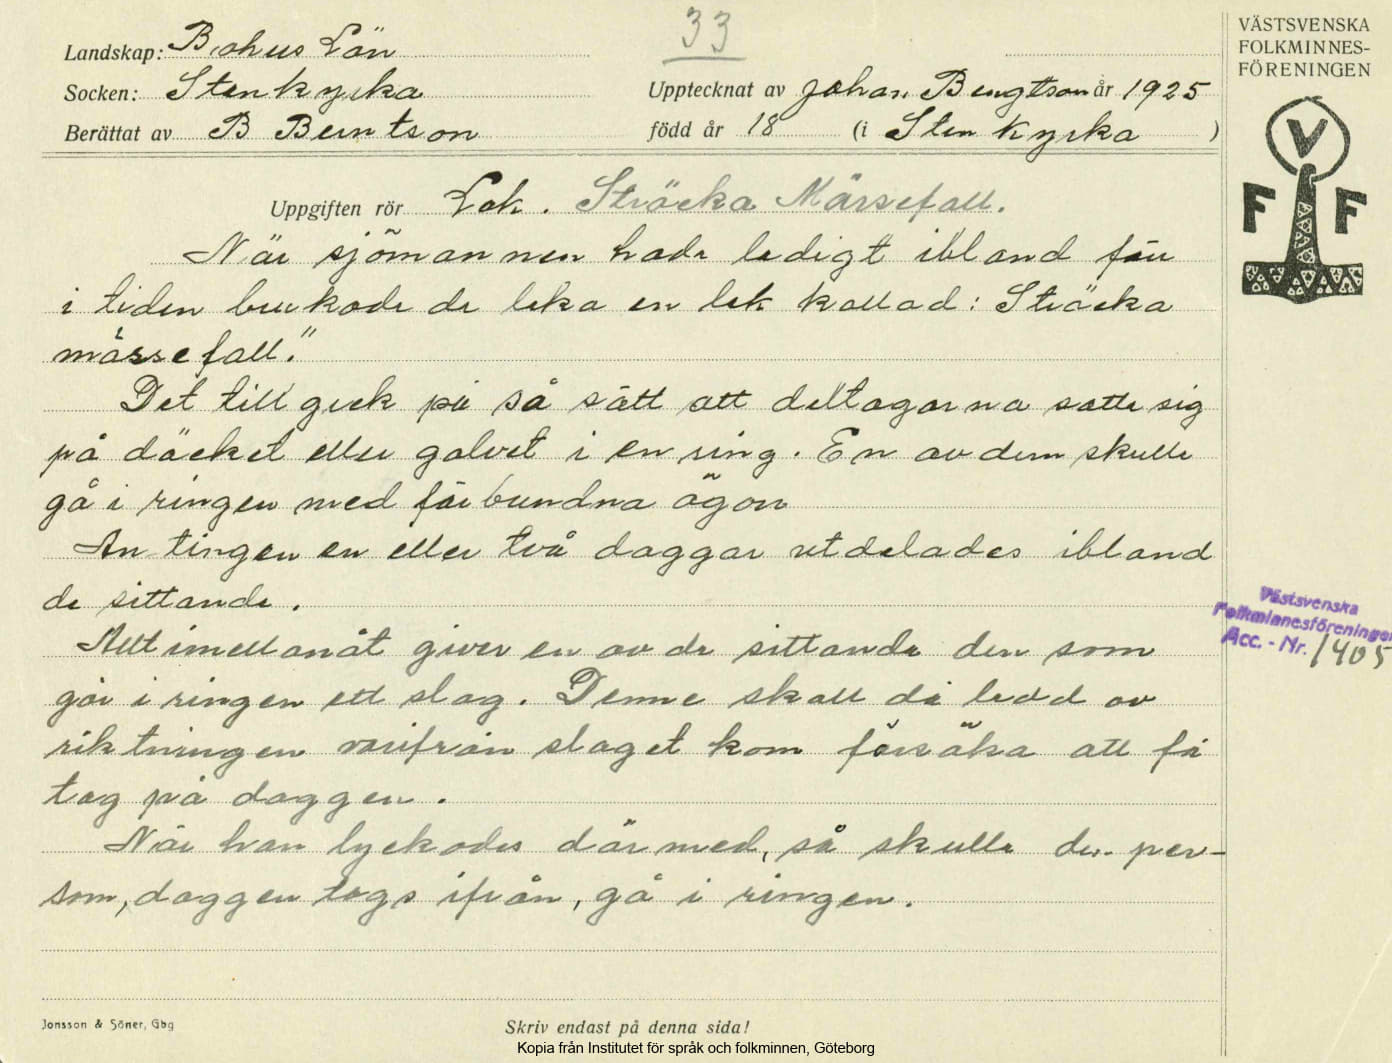 33
Landskap: Bohus Län
Socken: Stenkyrka
Upptecknat av Johan Bengtson år 1925
Berättat av B Berntson
född år 18 (i Stenkyrka )
Uppgiften rör Lek. Sträcka Märsefall.
När sjömannen hade ledigt ibland förr
i tiden brukade de leka en lek kallad: Sträcka
märsefall."
Det tillgick på så sätt att deltagarna satte sig
på däcket eller golvet i en ring. En av dem skulle
gå i ringen med förbundna ögon
Antingen en eller två daggar utdelades ibland
de sittande.
Alltimellanåt giver en av de sittande den som
går i ringen ett slag. Denne skall då ledd av
riktningen varifrån slaget kom försöka att få
tag på daggen.
När han lyckades därmed, så skulle den per-
som, daggen togs ifrån, gå i ringen.
Jonsson & Söner, Gbg
Skriv endast på denna sida!
Kopia från Institutet för språk och folkminnen, Göteborg
VÄSTSVENSKA
FOLKMINNES-
FÖRENINGEN
V
F F
Västsvenska
Folkminnesföreningen
Acc. - Nr. 1405